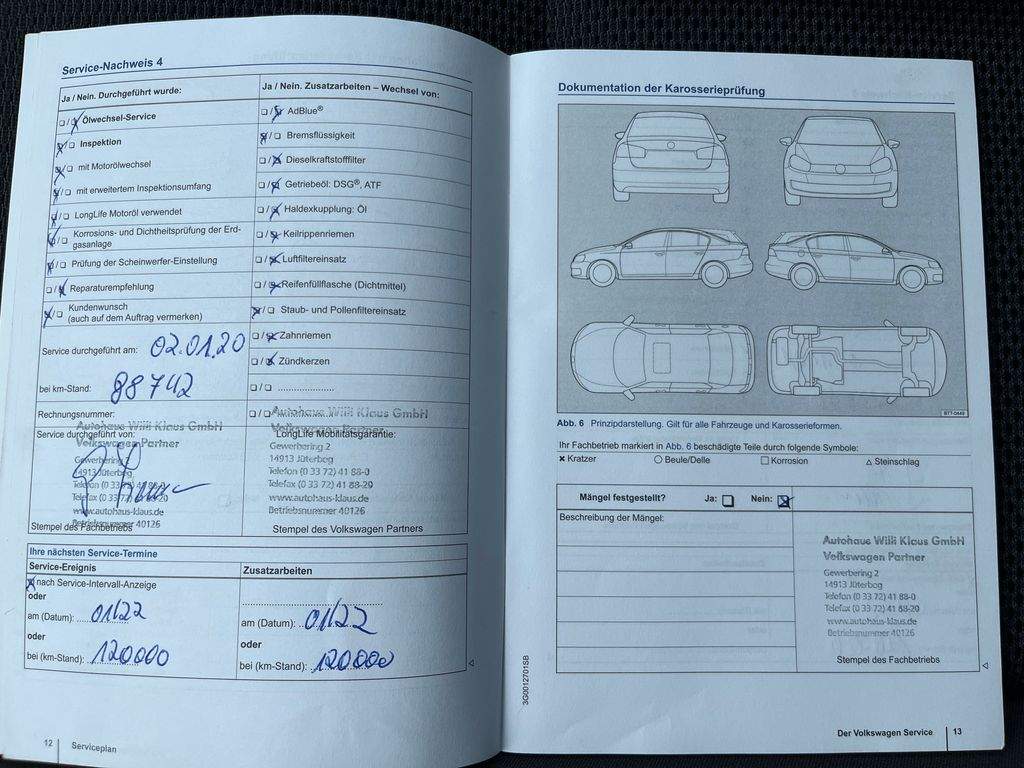 Service-Nachweis 4
Ja / Nein. Durchgeführt wurde:
Ölwechsel-Service
Inspektion
mit Motorölwechsel
mit erweitertem Inspektionsumfang
LongLife Motoröl verwendet
Korrosions- und Dichtheitsprüfung der Erd-
gasanlage
Prüfung der Scheinwerfer-Einstellung
Reparaturempfehlung
Kundenwunsch
(auch auf dem Auftrag vermerken)
Service durchgeführt am: 02.01.20
bei km-Stand: 88742
Rechnungsnummer:
Service durchgeführt von:
Autohaus Willi Klaus GmbH
Volkswagen Partner
Gewerbering 2
14913 Jüterbog
Telefon (0 33 72) 41 88-0
Telefax (0 33 72) 41 88-20
www.autohaus-klaus.de
Betriebsnummer 40126
Stempel des Fachbetriebs
Ja / Nein. Zusatzarbeiten – Wechsel von:
AdBlue®
Bremsflüssigkeit
Dieselkraftstofffilter
Getriebeöl: DSG®, ATF
Haldexkupplung: Öl
Keilrippenriemen
Luftfiltereinsatz
Reifenfüllflasche (Dichtmittel)
Staub- und Pollenfiltereinsatz
Zahnriemen
Zündkerzen
Autohaus Willi Klaus GmbH
Volkswagen Partner
LongLife Mobilitätsgarantie:
Gewerbering 2
14913 Jüterbog
Telefon (0 33 72) 41 88-0
Telefax (0 33 72) 41 88-20
www.autohaus-klaus.de
Betriebsnummer 40126
Stempel des Volkswagen Partners
Ihre nächsten Service-Termine
Service-Ereignis
nach Service-Intervall-Anzeige
oder
am (Datum): 01/22
oder
bei (km-Stand): 120000
Zusatzarbeiten
am (Datum): 01/22
oder
bei (km-Stand): 120000
12 Serviceplan
Dokumentation der Karosserieprüfung
BTT-0449
Abb. 6 Prinzipdarstellung. Gilt für alle Fahrzeuge und Karosserieformen.
Ihr Fachbetrieb markiert in Abb. 6 beschädigte Teile durch folgende Symbole:
Kratzer Beule/Delle Korrosion Steinschlag
Mängel festgestellt? Ja: Nein:
Beschreibung der Mängel:
Autohaus Willi Klaus GmbH
Volkswagen Partner
Gewerbering 2
14913 Jüterbog
Telefon (0 33 72) 41 88-0
Telefax (0 33 72) 41 88-20
www.autohaus-klaus.de
Betriebsnummer 40126
Stempel des Fachbetriebs
3G0012701SB
Der Volkswagen Service 13